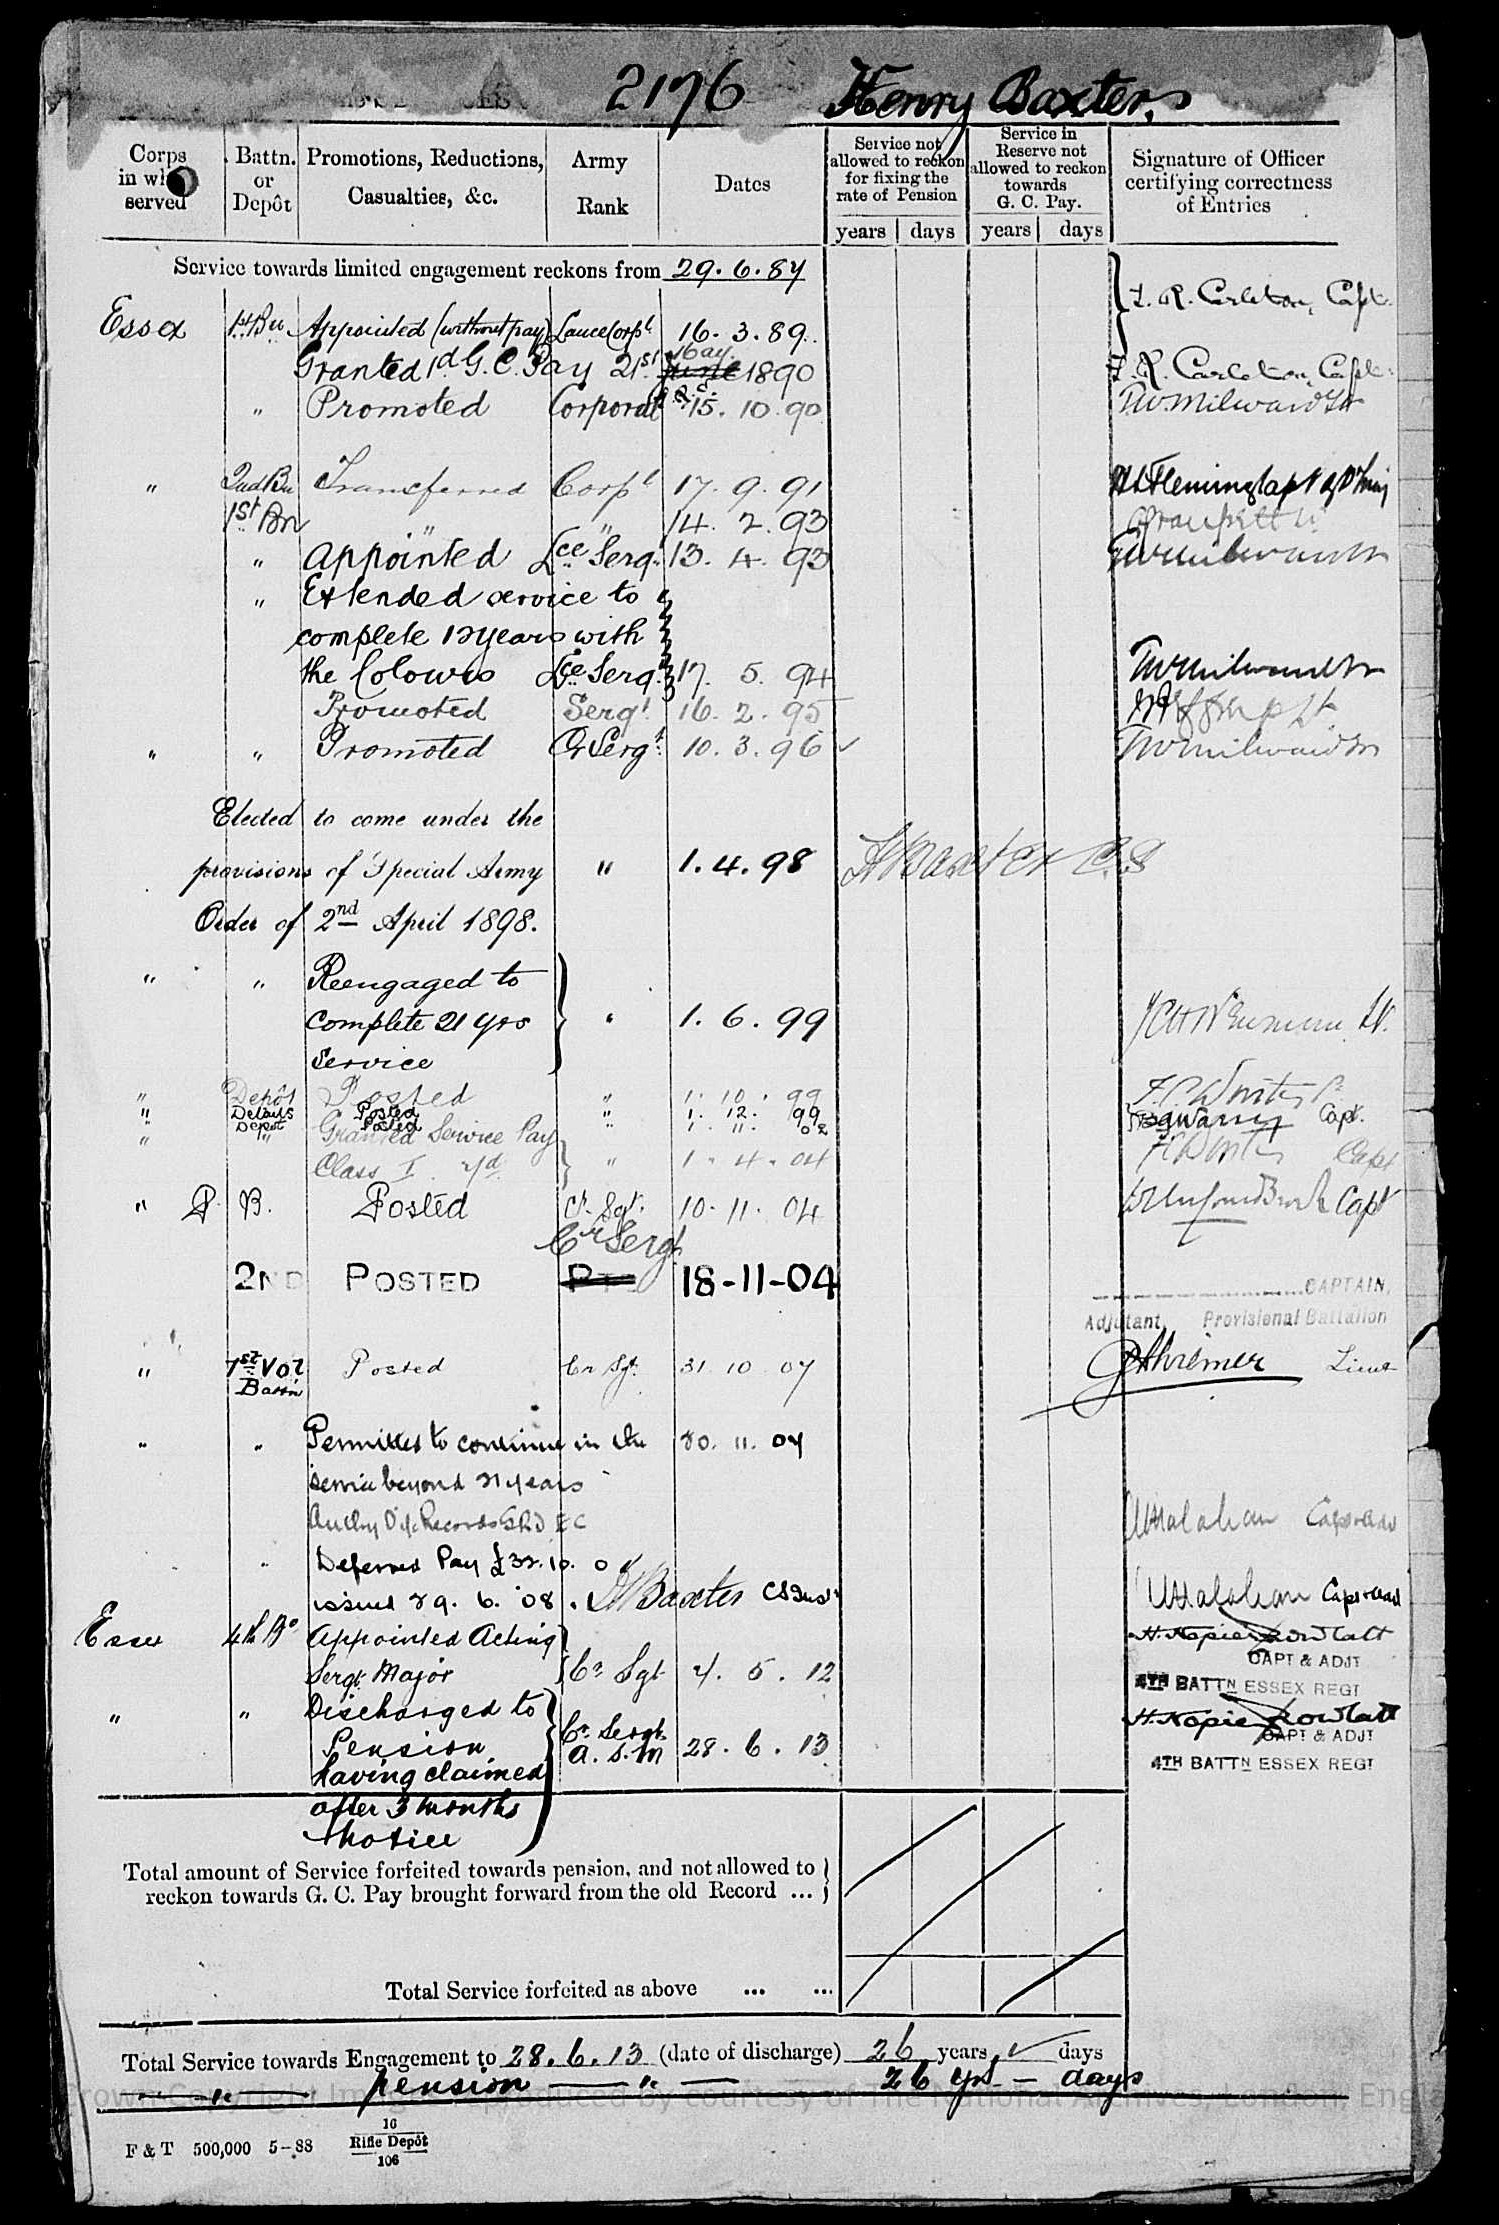 2176 Henry Baxter.
Corps in wh served
Battn. or Depôt
Promotions, Reductions, Casualties, &c.
Army Rank
Dates
Service not allowed to reckon for fixing the rate of Pension
Service in Reserve not allowed to reckon towards G. C. Pay.
Signature of Officer certifying correctness of Entries
years days years days
Service towards limited engagement reckons from 29.6.87
F. R. Carleton, Capt.
Essex 1st Bn Appointed (without pay) Lance Corpl 16.3.89.
Granted 1d G. C. Pay 21st June May 1890 F. R. Carleton, Capt.
" Promoted Corporal 15.10.90 Milward Lt
" 2nd Bn Transferred Corpl 17.9.91 Fleming Capt
1st Bn " " 14.2.93
" Appointed Lce Sergt 13.4.93 Milward Lt
" Extended service to
complete 12 years with
the Colours Lce Sergt 17.5.94 Milward Lt
Promoted Sergt 16.2.95
" " Promoted Cr Sergt 10.3.96 Milward Lt
Elected to come under the
provisions of Special Army " 1.4.98 H Baxter C.S
Order of 2nd April 1898.
" " Reengaged to
complete 21 yrs " 1.6.99 Lt.
service
" Depôt Posted " 1.10.99
" Details Posted " 1.12.99 Capt.
" Depot Posted " 1.11.02
" " Granted Service Pay
Class I 7d " 1.4.04 Capt
" P. B. Posted Cr Sgt. 10.11.04 Capt
Cr Sergt
2ND POSTED PTE 18-11-04 CAPTAIN,
Adjutant, Provisional Battalion
" 1st Vol Battn Posted Cr Sgt. 31.10.07 Lieut
" " Permitted to continue in the 30.11.07
service beyond 21 years
Authy O i/c Records
" Deferred Pay £32.10.0
issued 29.6.'08. H Baxter
Essex 4th Bn Appointed Acting H. Napier Rowlatt
CAPT & ADJT
Sergt Major Cr Sgt 4.5.12 4TH BATTN ESSEX REGT
" " Discharged to H. Napier Rowlatt
Pension Cr Sergt A.S.M 28.6.13 CAPT & ADJT
having claimed 4TH BATTN ESSEX REGT
after 3 months
notice
Total amount of Service forfeited towards pension, and not allowed to
reckon towards G. C. Pay brought forward from the old Record ...
Total Service forfeited as above ... ...
Total Service towards Engagement to 28.6.13 (date of discharge) 26 years ✓ days
" pension " 26 yrs — days
Crown Copyright Images reproduced by courtesy of The National Archives, London, Engla
F & T 500,000 5–88 16 Rifle Depôt 106